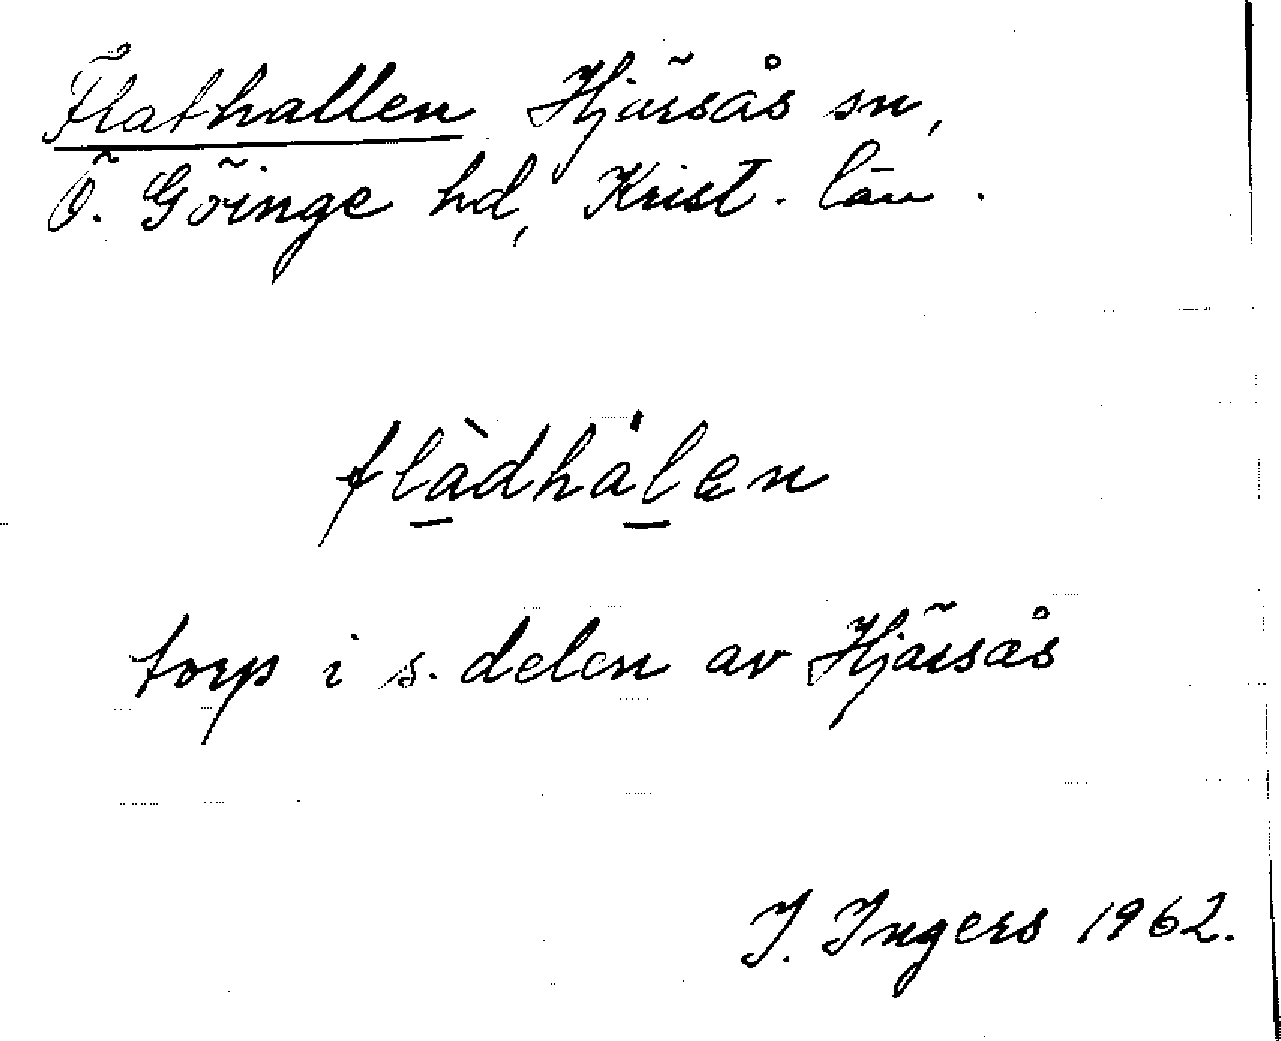 Flathallen Hjärsås sn,
Ö. Göinge hd, Krist. län.
flàdhálen
torp i s. delen av Hjärsås
I. Ingers 1962.